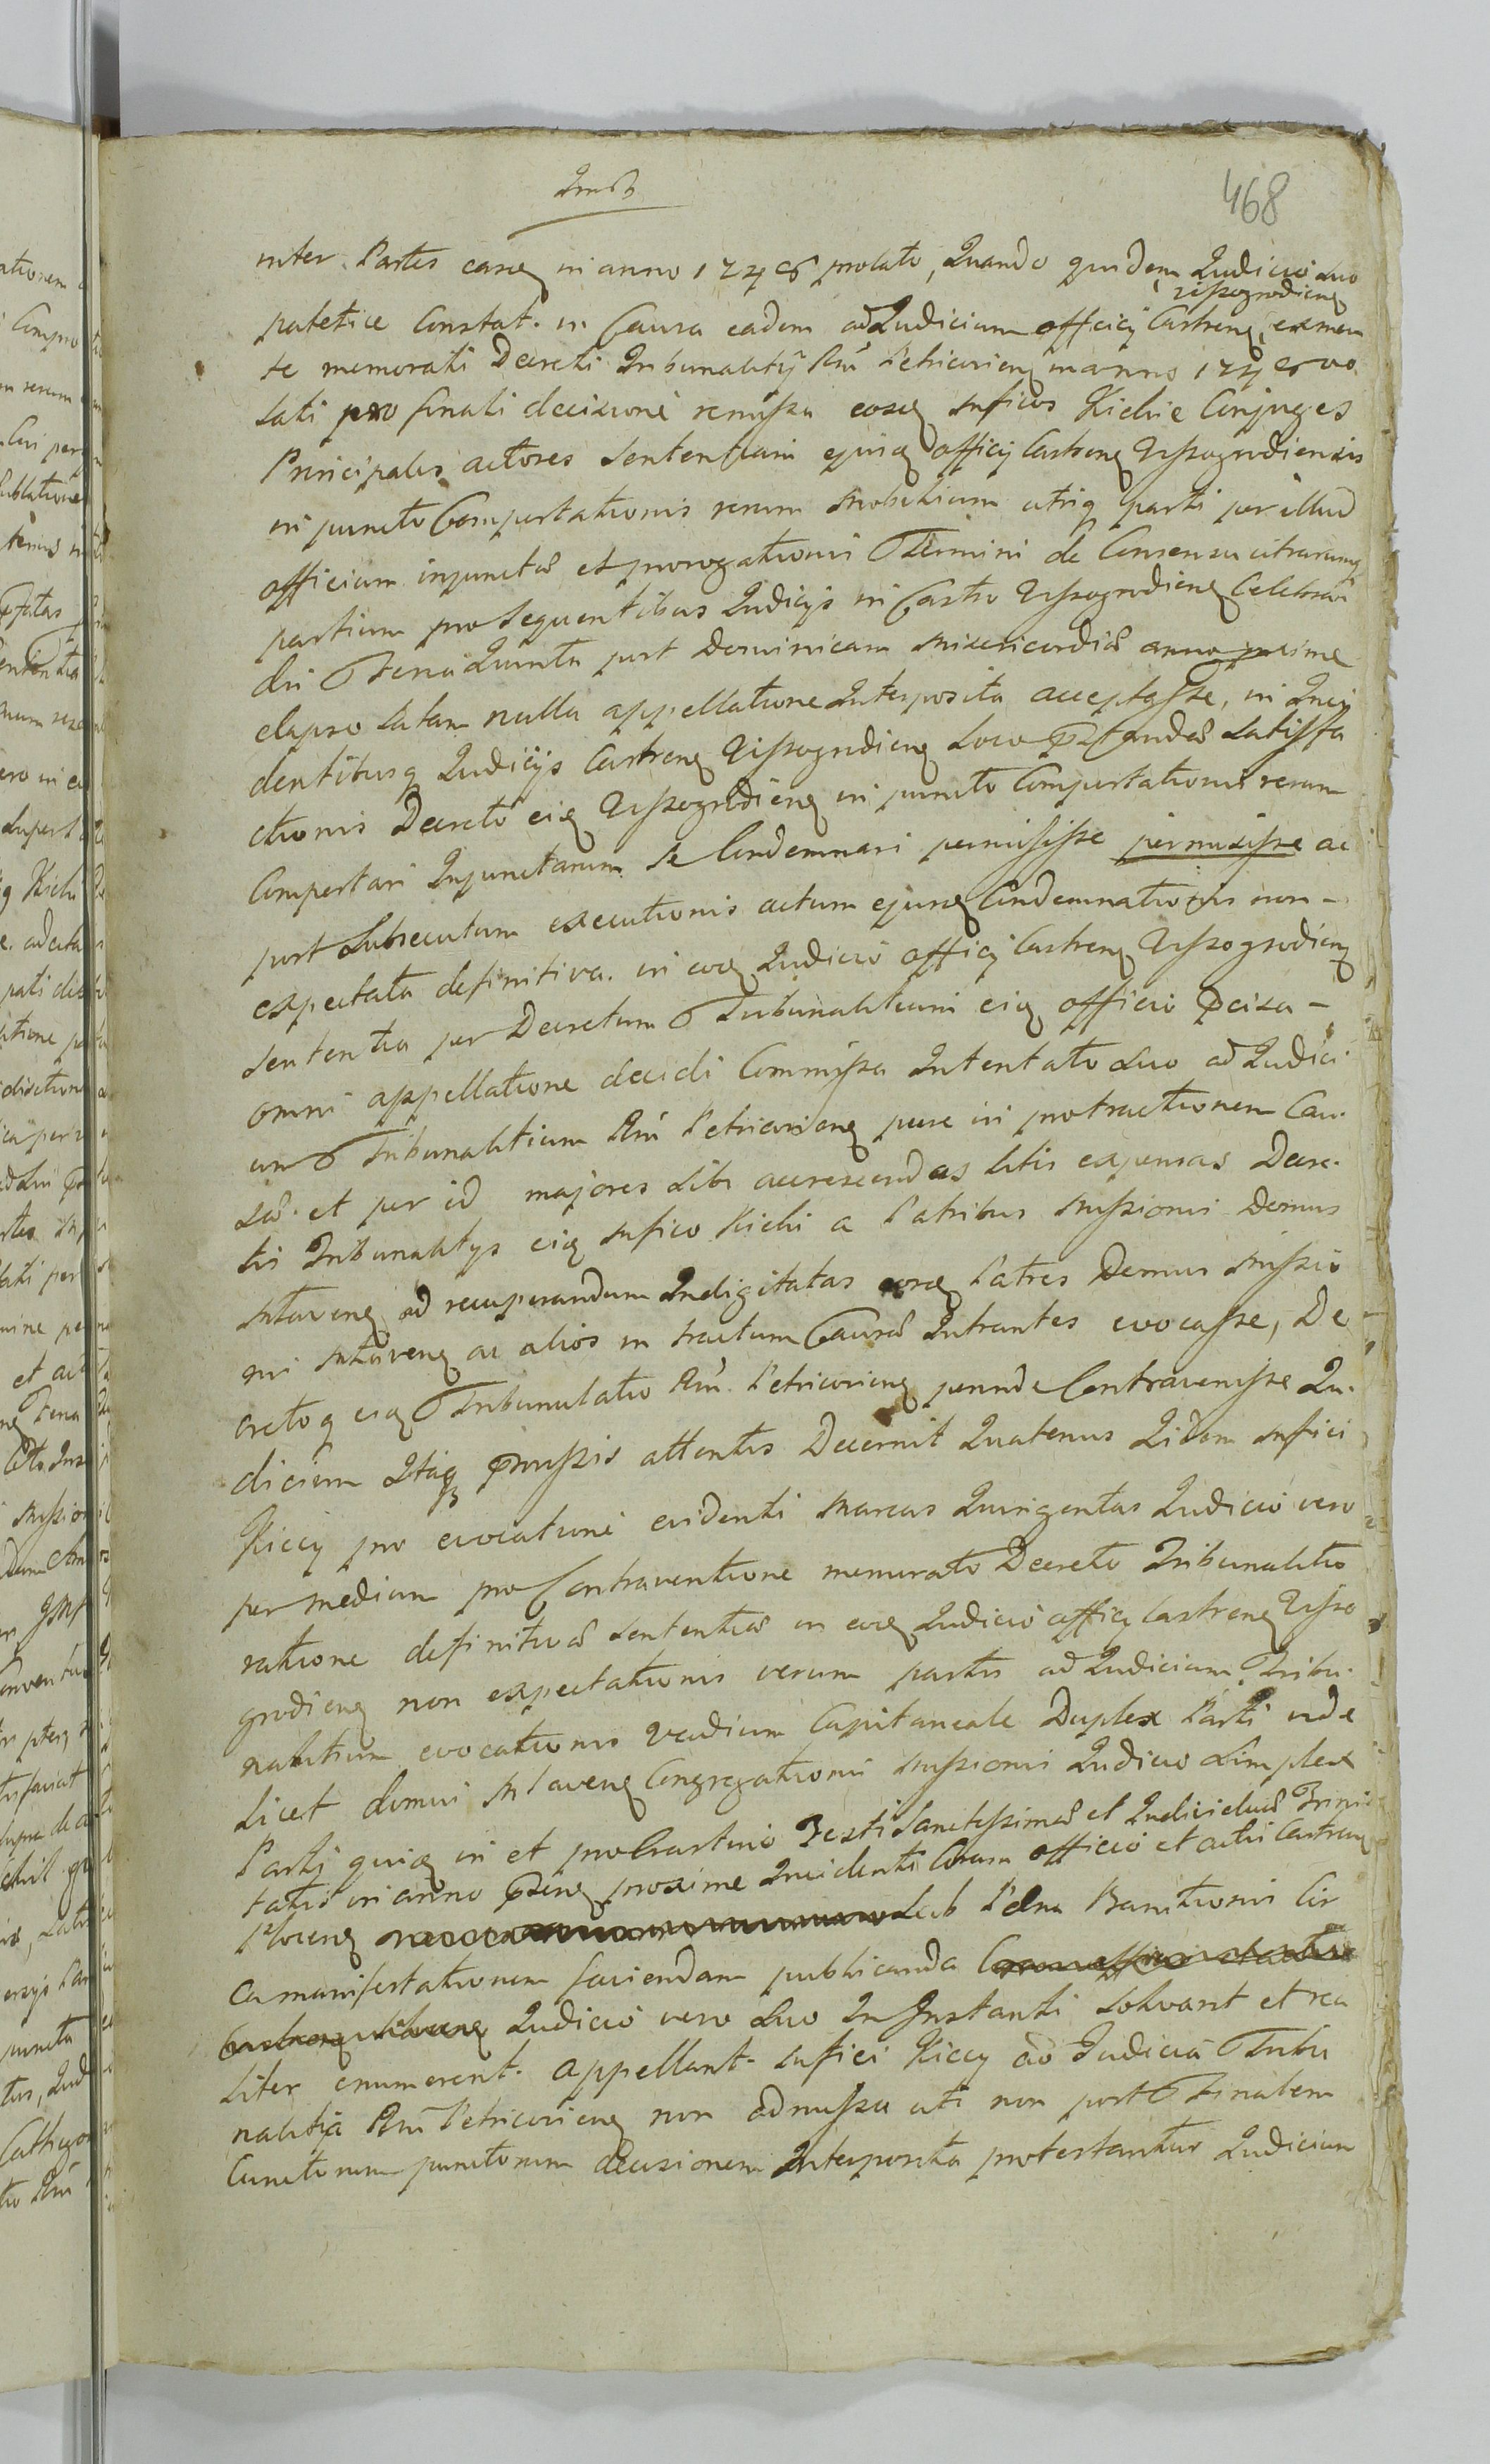 468
inter Partes easq in anno 1746 prolato, Quando quidem Judicio suo
Vissogrodieng
patetice Constat. in Causa eadem ad Judicium officij Castreng, ex men
te memorati Decreti Tribunalitij Rni Petricovieng in anno 1746
lati pro finali decisione remissa eosq Mficos Kickie Conjuges
Principales actores sententiam ejusq officij Castreng Vissogrodiensis
in puncto Comportationis rerum mobilium utriq parti per illud
officium injunctas et prorogationis Termini de Consensu utrarumq
partium pro sequentibus Judicijs in Castro Vissogrodieng Celebran
di Feria Quinta post Dominicam Misericordiæ anno proxime
elapso latam nulla appellatione Interposita acceptasse, in Inci
dentibusq Judicijs Castreng Vissogrodieng Loco Prstandæ Satisfa
ctionis Decreto eiq Vissogrodieng in puncto Comportationis rerum
Comportari Injunctarum se Condemnari permisisse permisisse ac
post Subsecutum executionis actum ejusq Condemnationis non -
expectata definitiva. in eoq Judicio officij Castreng Vissogrodieng
sententia per Decretum Tribunalitium eiq officio Pcisa -
omni appellatione decidi Commissa Intentato suo ad Judici
um Tribunalitium Rni Petricovieng pure in protractionem Cau
sæ. et per id majores sibi accrescendas litis expensas Decre.
tis Tribunalitijs eiq Mfico Kicki a Patribus Missionis Domus
Mlaveng ad recuperandum Indigitatas eosq Patres Domus Missio
nis Mlaveng ac alios in tractum Causæ Intrantes evocasse, De
cretoq eiq Tribunalitio Rni. Petricovieng perinde Contravenisse Ju.
dicium Itaq Pmissis attentis Decernit Quatenus Iidem Mfici
Kiccy pro evocatione evidenti Marcas Quingentas Judicio vero
per medium pro Contraventione memorato Decreto Tribunalitio
ratione definitivæ sententiæ in eoq Judicio officij Castreng Visso
grodieng non expectationis verum partis ad Judicium Tribu.
nalitium evocationis Vadium Capitaneale Duplex Parti vide
licet domui Mlaveng Congregationis Missionis Judicio Simplex
Parti quiq in et pro Crastino Festi Sanctissimæ et Individuæ Trini
tatis in anno Pseng proxime Incidenti Coram officio et actis Castreng
Ploceng sub Pena Banitionis Cir
ca manifestationem faciendam publicanda Coram officio et actis
Castreng Ploceng Judicio vero suo In Instanti solvant et rea
liter enumerent. appellant. Mfici Kiccy ad Judicia Tribu
nalitia Rni Petricovieng non admissa uti non post Finalem
Cunctorum punctorum decisionem Interposita protestantur Judicium